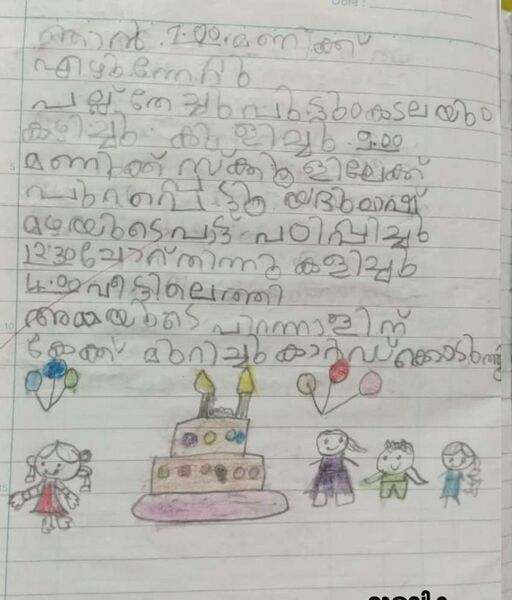 ഞാൻ 7:00 മണിക്ക്
എഴുന്നേറ്റു
പല്ല് തേച്ചു പുട്ടും കടലയും
കഴിച്ചു കുളിച്ചു 9:00
മണിക്ക് സ്കൂളിലേക്ക്
പുറപ്പെട്ടു
മഴയുടെ പാട്ട് പഠിപ്പിച്ചു
12:30 ചോറ് തിന്നു കളിച്ചു
4:00 വീട്ടിലെത്തി
അമ്മയുടെ പിറന്നാളിന്
കേക്ക് മുറിച്ചു കാർഡ് കൊടുത്തു